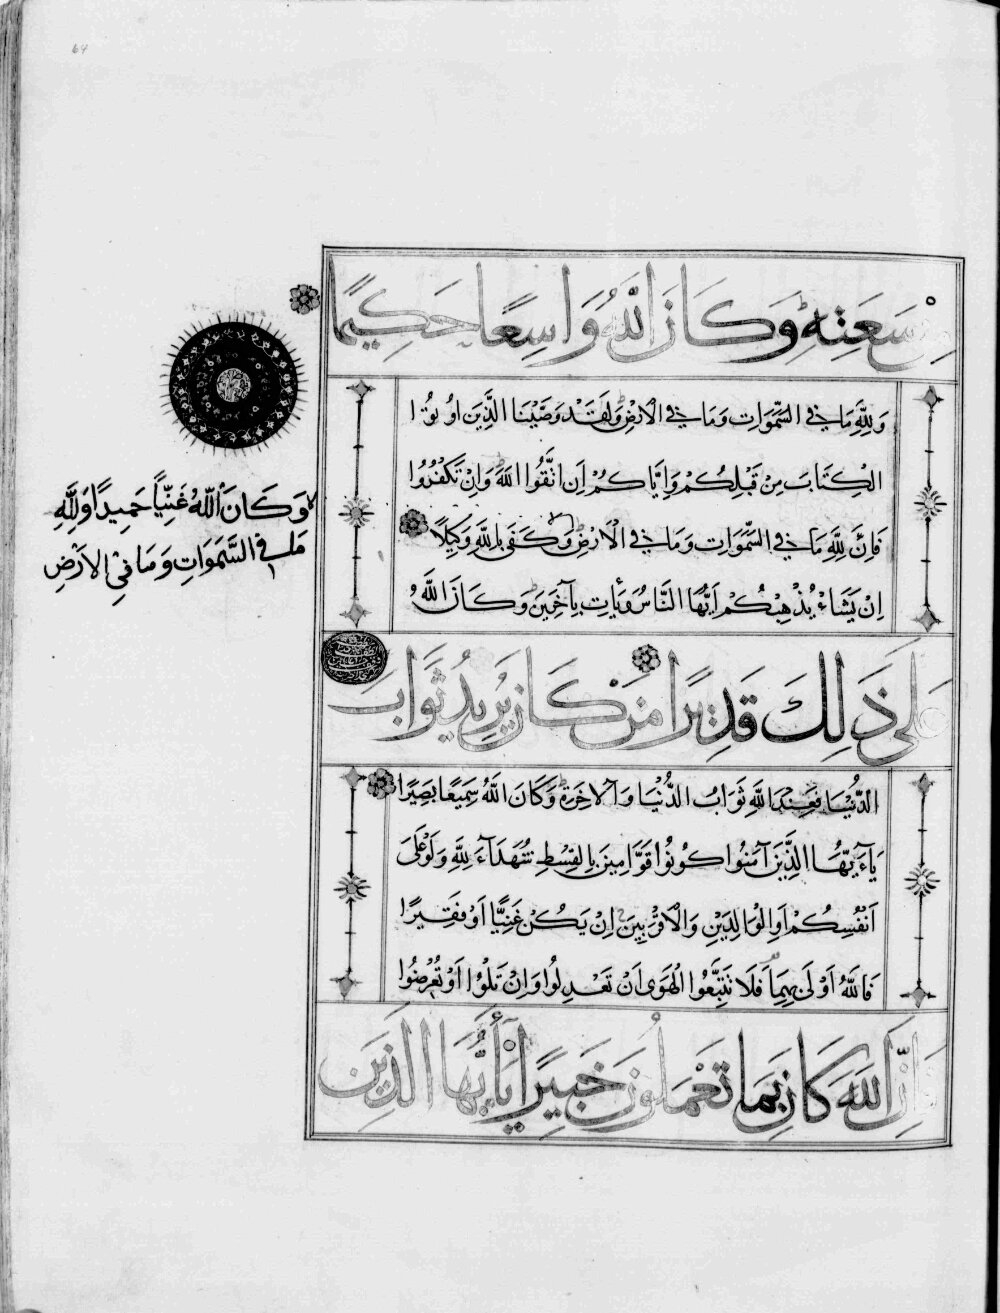 64
مِنْ سَعَتِهِ وَكَانَ اللَّهُ وَاسِعًا حَكِيمًا
وَلِلَّهِ مَا فِي السَّمَوَاتِ وَمَا فِي الْاَرْضِ وَلَقَدْ وَصَّيْنَا الَّذِينَ اُوتُوا
الْكِتَابَ مِنْ قَبْلِكُمْ وَاِيَّاكُمْ اَنِ اتَّقُوا اللَّهَ وَاِنْ تَكْفُرُوا
فَاِنَّ لِلَّهِ مَا فِي السَّمَوَاتِ وَمَا فِي الْاَرْضِ وَكَفَى بِاللَّهِ وَكِيلًا
اِنْ يَشَاْ يُذْهِبْكُمْ اَيُّهَا النَّاسُ وَيَأْتِ بِآخَرِينَ وَكَانَ اللَّهُ
عَلَى ذَلِكَ قَدِيرًا مَنْ كَانَ يُرِيدُ ثَوَابَ
الدُّنْيَا فَعِنْدَ اللَّهِ ثَوَابُ الدُّنْيَا وَالْآخِرَةِ وَكَانَ اللَّهُ سَمِيعًا بَصِيرًا
يَاءَيُّهَا الَّذِينَ آمَنُوا كُونُوا قَوَّامِينَ بِالْقِسْطِ شُهَدَآءَ لِلَّهِ وَلَوْ عَلَى
اَنْفُسِكُمْ اَوِ الْوَالِدَيْنِ وَالْاَقْرَبِينَ اِنْ يَكُنْ غَنِيًّا اَوْ فَقِيرًا
فَاللَّهُ اَوْلَى بِهِمَا فَلَا تَتَّبِعُوا الْهَوَى اَنْ تَعْدِلُوا وَاِنْ تَلْوُوا اَوْ تُعْرِضُوا
فَاِنَّ اللَّهَ كَانَ بِمَا تَعْمَلُونَ خَبِيرًا يَاأَيُّهَا الَّذِينَ
وَكَانَ اللَّهُ غَنِيًّا حَمِيدًا وَلِلَّهِ
مَا فِي السَّمَوَاتِ وَمَا فِي الْاَرْضِ